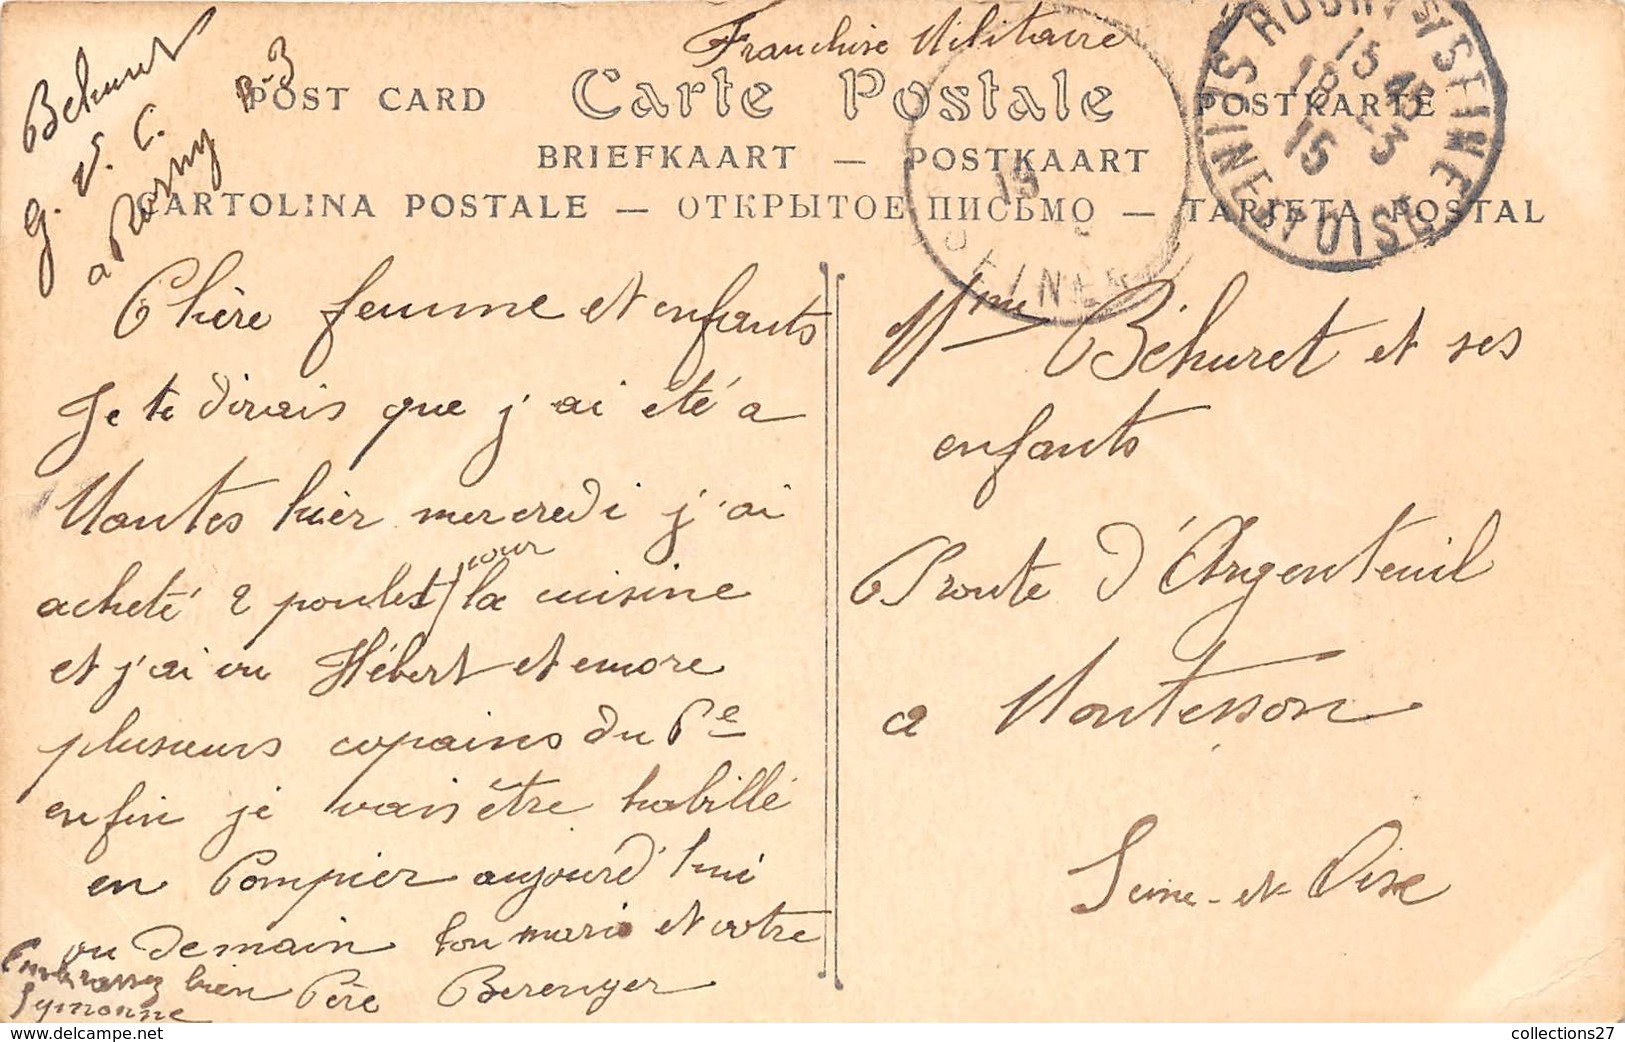 Franchise Militaire
Behuret
G. V. C.
a Rosny B-3
POST CARD Carte Postale POSTKARTE
BRIEFKAART — POSTKAART
CARTOLINA POSTALE — ОТКРЫТОЕ ПИСЬМО — TARJETA POSTAL
15 45
18 - 3
15
SEINE-ET-OISE
19
SEINE
Chère femme et enfants
Je te dirais que j'ai été a
Mantes hier mercredi j'ai
acheté 2 poulet pour la cuisine
et j'ai vu Hébert et encore
plusieurs copains du Pe
enfin je vais être habillé
en Pompier aujourd'hui
ou demain ton mari et votre
Père Berenger
Embrassez bien
Symonne
Mme Béhuret et ses
enfants
route d'Argenteuil
a Montesson
Seine-et Oise
collections27